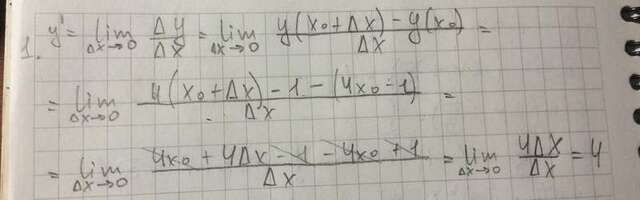 1. y' = lim Δx→0 Δy/Δx = lim Δx→0 (y(x₀+Δx) - y(x₀))/Δx =
= lim Δx→0 (4(x₀+Δx) - 1 - (4x₀ - 1))/Δx =
= lim Δx→0 (4x₀ + 4Δx - 1 - 4x₀ + 1)/Δx = lim Δx→0 4Δx/Δx = 4